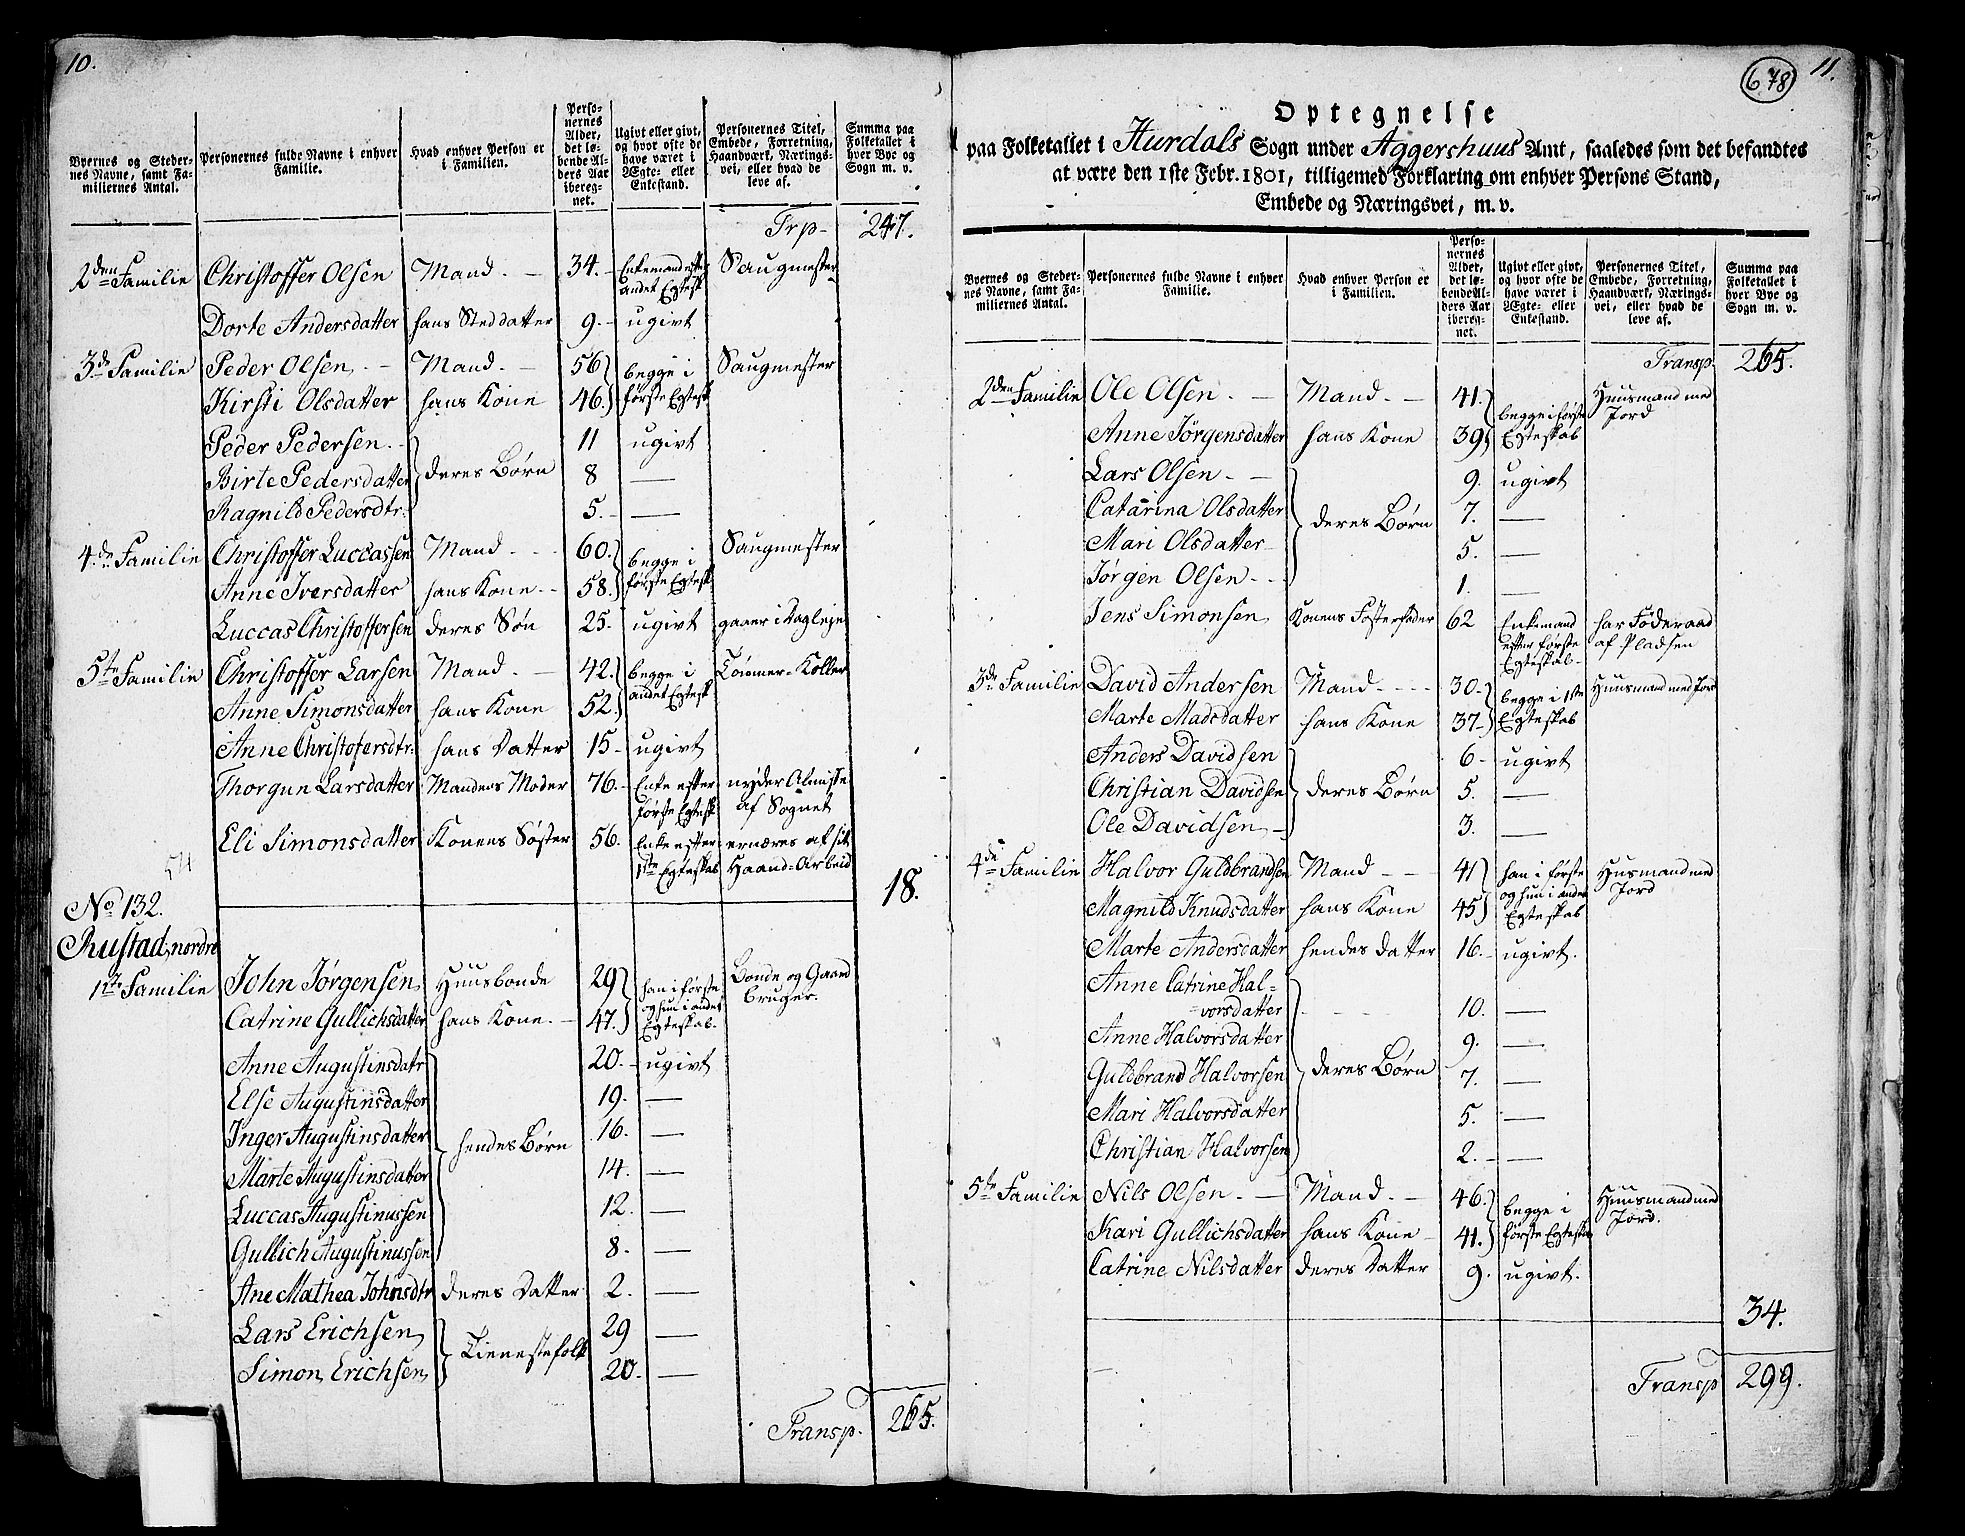 10.
Byernes og Steder-
nes Navne, samt Fa-
miliernes Antal.
Personernes fulde Navne i enhver
Familie.
Hvad enhver Person er
i Familien.
Perso-
nernes
Alder,
det lø-
bende Al-
ders Aar
ibereg-
net.
Ugivt eller givt,
og hvor ofte de
have været i
Ægte- eller
Enkestand.
Personernes Titel,
Embede, Forretning,
Haandværk, Nærings-
vei, eller hvad de
leve af.
Summa paa
Folketallet i
hver Bye og
Sogn m. v.
Trp- 247.
2den Familie Christoffer Olsen Mand. 34. Enkemand efter andet Egtesk Saugmester
Dorte Andersdatter hans Steddatter 9. ugivt
3de Familie Peder Olsen Mand. 56 begge i første Egtesk Saugmester
Kirsti Olsdatter hans Kone 46.
Peder Pedersen deres Børn 11 ugivt
Birte Pedersdatter 8 —
Ragnild Pedersdtr. 5. —
4de Familie Christoffer Luccassen Mand 60. begge i første Egtesk Saugmester
Anne Iversdatter hans Kone 58.
Luccas Christoffersen deres Søn 25. ugivt gaaer i Dagleje
5te Familie Christoffer Larsen Mand. 42. begge i andet Egtesk Tømmer-Koller
Anne Simonsdatter hans Kone 52.
Anne Christofersdtr. hans Datter 15 ugivt
Thorgun Larsdatter Mandens Moder 76. Enke efter første Egtesk nyder Almisse af Sognet
Eli Simonsdatter Konens Søster 56. Enke efter 1ste Egteskab ernæres af sit Haand-Arbeid
54
18.
No 132.
Rustad, nordre
1ste Familie John Jørgensen Huusbonde 29 han i første og hun i andet Egteskab. Bonde og Gaard bruger.
Catrine Gullichsdatter hans Kone. 47.
Anne Augustinsdatr hendes Børn 20. ugivt
Else Augustinsdatter 19. —
Inger Augustinsdatter 16. —
Marte Augustinsdatter 14. —
Luccas Augustinussen 12. —
Gullich Augustinussen 8. —
Ane Mathea Johnsdtr deres Datter 2. —
Lars Erichsen Tienestefolk 29 —
Simon Erichsen 20. —
Transp. 265.
678
11.
Optegnelse
paa Folketallet i Hurdals Sogn under Aggershuus Amt, saaledes som det befandtes
at være den 1ste Febr. 1801, tilligemed Forklaring om enhver Persons Stand,
Embede og Næringsvei, m. v.
Byernes og Steder-
nes Navne, samt Fa-
miliernes Antal.
Personernes fulde Navne i enhver
Familie.
Hvad enhver Person er
i Familien.
Perso-
nernes
Alder,
det lø-
bende Al-
ders Aar
ibereg-
net.
Ugivt eller givt,
og hvor ofte de
have været i
Ægte- eller
Enkestand.
Personernes Titel,
Embede, Forretning,
Haandværk, Nærings-
vei, eller hvad de
leve af.
Summa paa
Folketallet i
hver Bye og
Sogn m. v.
Transp. 265.
2den Familie Ole Olsen. Mand. 41. begge i første Egteskab Huusmand med Jord
Anne Jørgensdatter hans Kone 39
Lars Olsen deres Børn 9. ugivt
Catarina Olsdatter 7. —
Mari Olsdatter 5. —
Jørgen Olsen 1. —
Jens Simonsen Konens Fosterfader 62 Enkemand efter første Egteskab har Føderaad af Pladsen
3de Familie David Andersen Mand 30 begge i 1ste Egteskab Huusmand med Jor
Marte Madsdatter hans Kone 37
Anders Davidsen deres Børn 6 ugivt
Christian Davidsen 5. —
Ole Davidsen 3. —
4de Familie Halvor Guldbrandsen Mand 41 han i første og hun i andet Egteskab Husmand med Jord
Magnild Knudsdatter hans Kone 45
Marte Andersdatter hendes Datter 16. ugivt.
Anne Catrine Hal-
vorsdatter deres Børn 10. —
Anne Halvorsdatter 9. —
Guldbrand Halvorsen 7. —
Mari Halvorsdatter 5. —
Christian Halvorsen 2. —
5te Familie Nils Olsen. Mand. 46. begge i første Egteska Huusmand med Jord.
Kari Gullichsdatter hans Kone 41.
Catrine Nilsdatter deres Datter 9. ugivt.
34.
Transp 299.